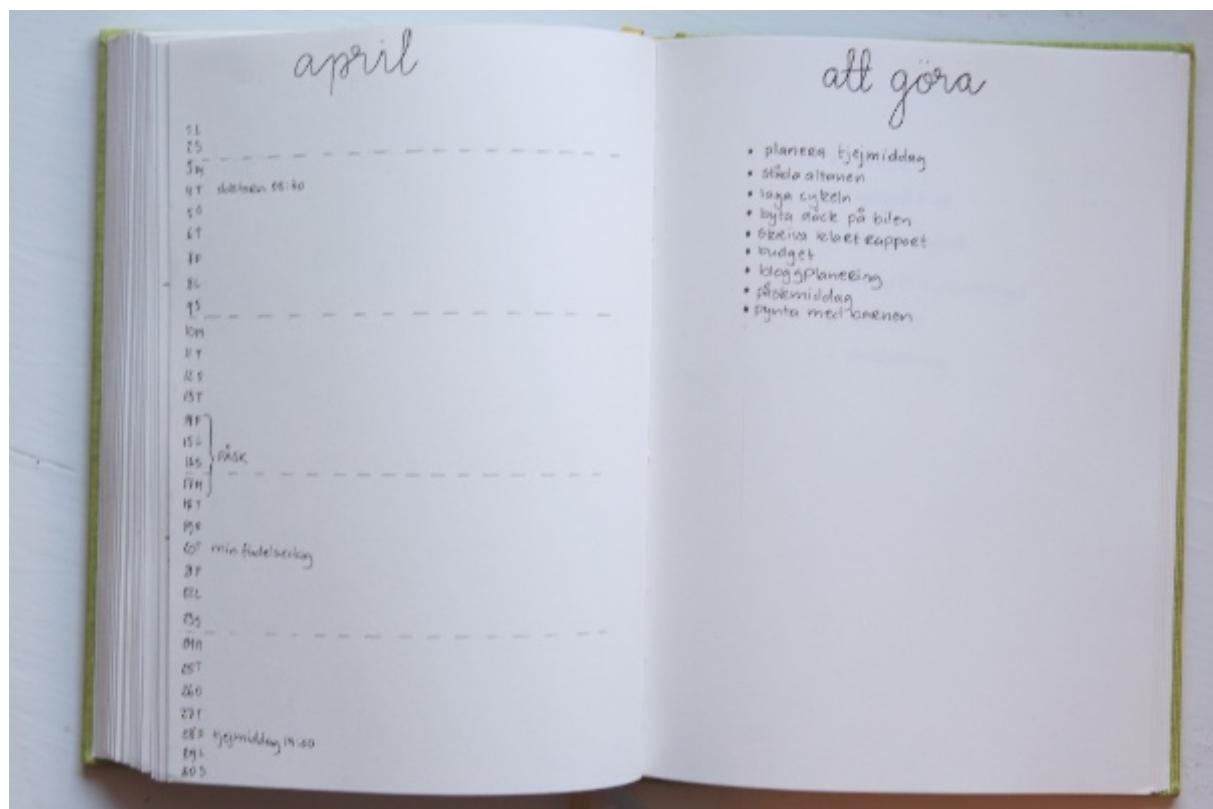 april
1 L
2 S
3 M
4 T doktorn 08:30
5 O
6 T
7 F
8 L
9 S
10 M
11 T
12 O
13 T
14 F
15 L
16 S PÅSK
17 M
18 T
19 O
20 T min födelsedag
21 F
22 L
23 S
24 M
25 T
26 O
27 T
28 F tjejmiddag 19:00
29 L
30 S
att göra
• planera tjejmiddag
• städa altanen
• laga cykeln
• byta däck på bilen
• skriva klart rapport
• budget
• bloggplanering
• påskmiddag
• pynta med barnen